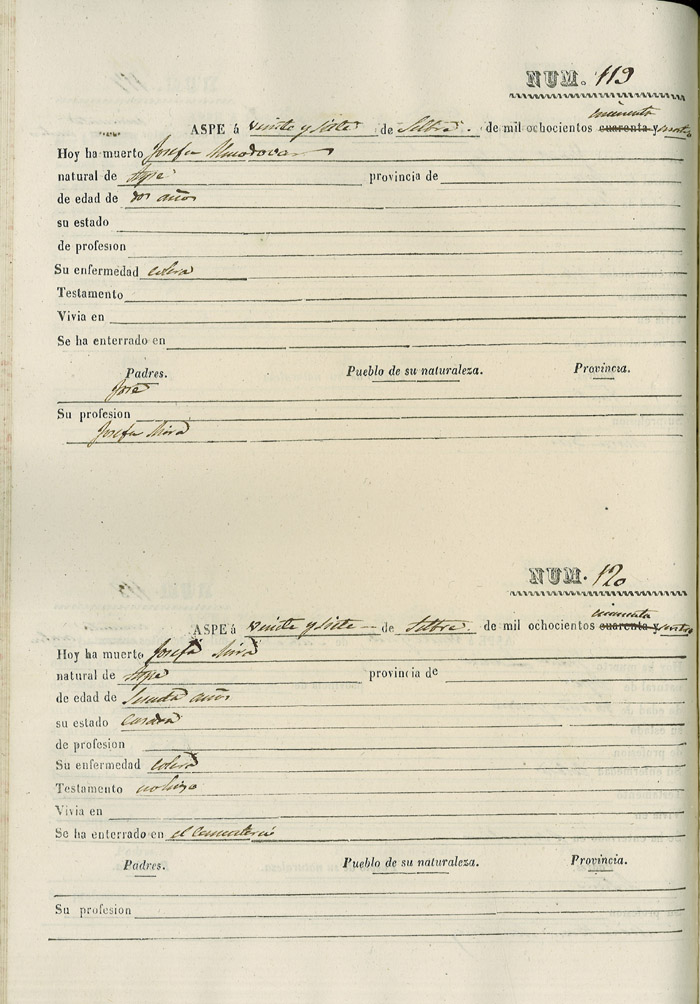 NUM. 119
cincuenta
ASPE á veinte y siete de Setbre. de mil ochocientos cuarenta y cuatro
Hoy ha muerto Josefa Almodovar
natural de Aspe provincia de
de edad de dos años
su estado
de profesion
Su enfermedad colera
Testamento
Vivia en
Se ha enterrado en
Padres. Pueblo de su naturaleza. Provincia.
José
Su profesion
Josefa Mira
NUM. 120
cincuenta
ASPE á veinte y siete de Setbre. de mil ochocientos cuarenta y cuatro
Hoy ha muerto Josefa Mira
natural de Aspe provincia de
de edad de años
su estado casada
de profesion
Su enfermedad colera
Testamento no hizo
Vivia en
Se ha enterrado en el Cementerio
Padres. Pueblo de su naturaleza. Provincia.
Su profesion